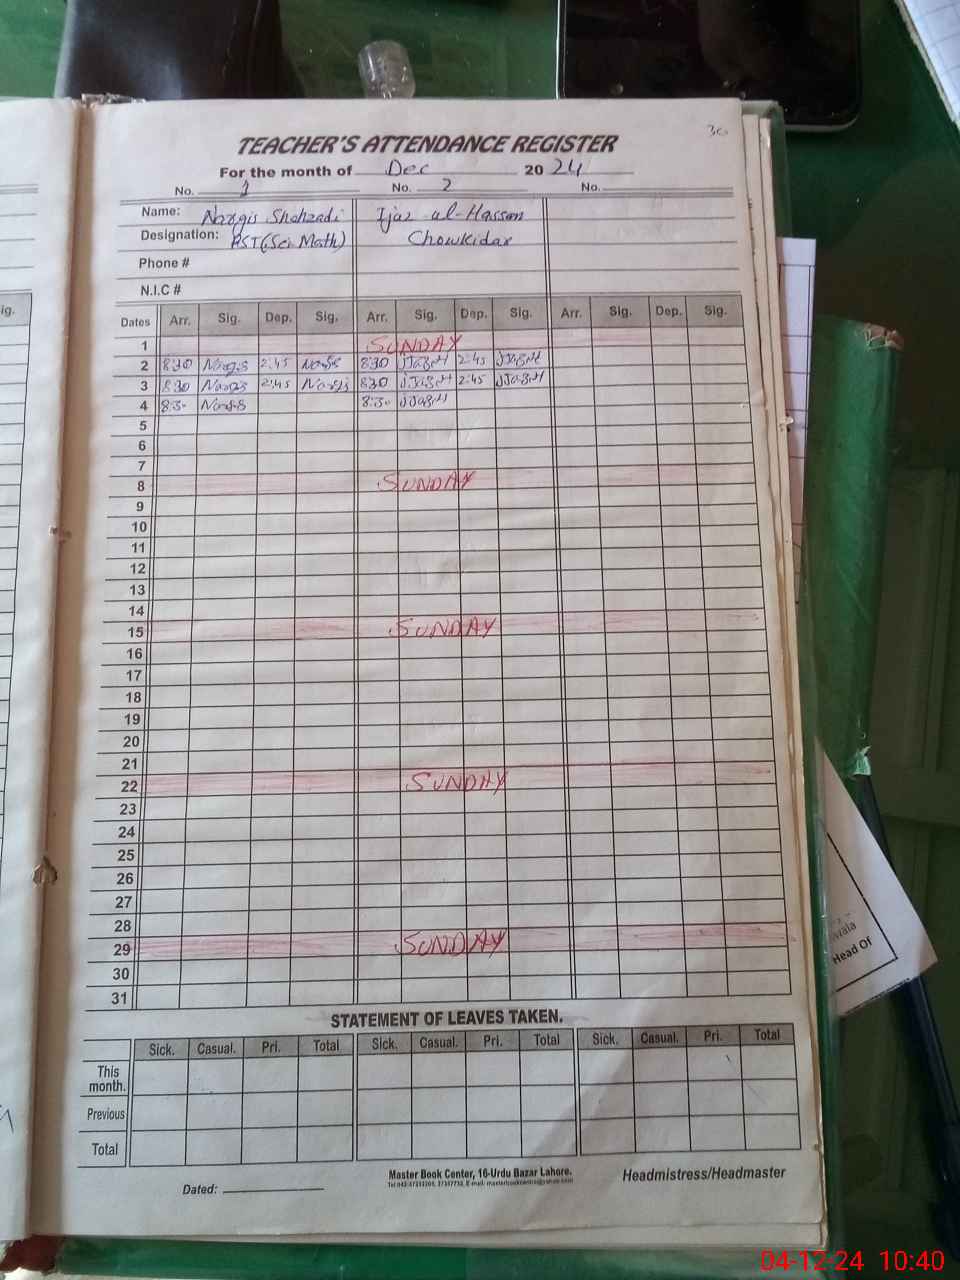 30
TEACHER'S ATTENDANCE REGISTER
For the month of Dec 2024
No. 1 No. 2 No.
Name: Nargis Shahzadi Ijaz-ul-Hassan
Designation: PST(Sci Math) Chowkidar
Phone #
N.I.C #
ig.
Dates Arr. Sig. Dep. Sig. Arr. Sig. Dep. Sig. Arr. Sig. Dep. Sig.
1 SUNDAY
2 8:30 Nargis 2:45 Nargis 8:30 2:45
3 8:30 Nargis 2:45 Nargis 8:30 2:45
4 8:30 Nargis 8:30
5
6
7
8 SUNDAY
9
10
11
12
13
14
15 SUNDAY
16
17
18
19
20
21
22 SUNDAY
23
24
25
26
27
28
29 SUNDAY
30
31
STATEMENT OF LEAVES TAKEN.
Sick. Casual. Pri. Total Sick. Casual. Pri. Total Sick. Casual. Pri. Total
This month.
Previous
Total
Master Book Center, 16-Urdu Bazar Lahore.
Dated: Headmistress/Headmaster
Head Of
04-12-24 10:40